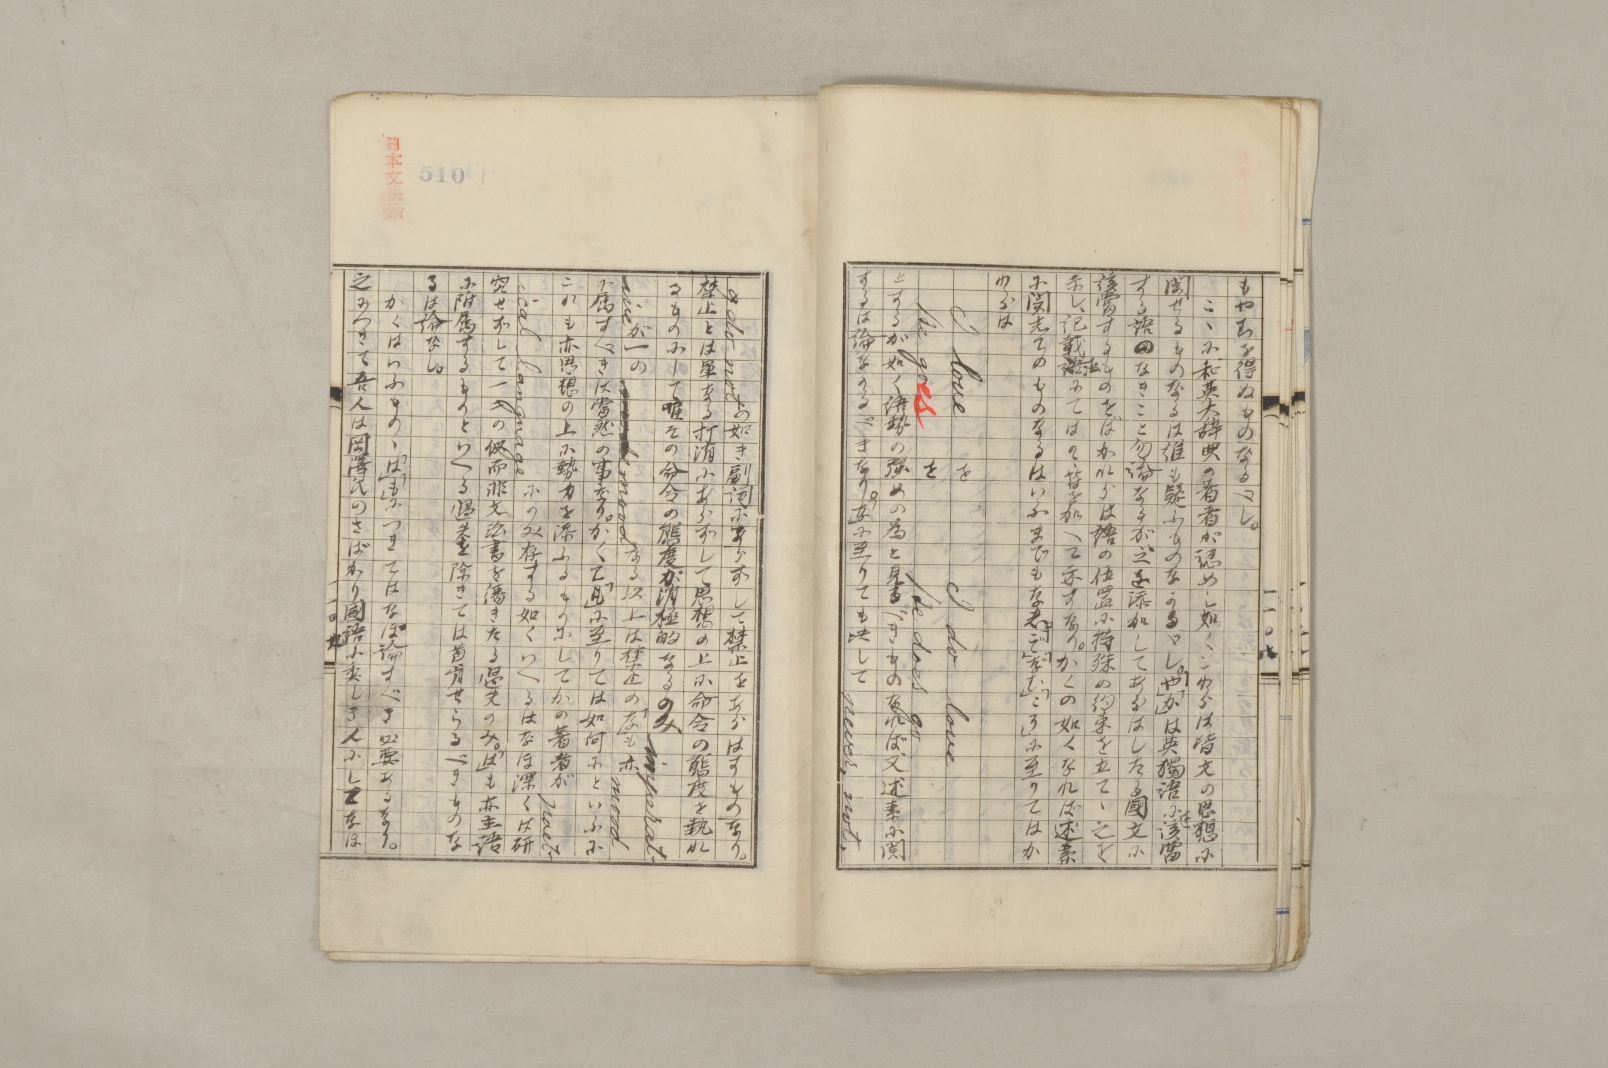 もやむを得ぬものなるべし。
こゝに和英大辞典の著者が認めし如くこれらは皆文の思想に
関せるものなるは誰も疑ふものなかるべし。「や」「か」は英獨語に該當
する語のなきこと勿論なるが之を添加してあらはしたる國文に
該當するものをばかれらは語の位置に特殊の約束を立てゝ之を
示し、記載法にては?符を加へて示すなり。かくの如くなれば述素
に関してのものなるはいふまでもなし。「ぞ」「なむ」「こそ」に至りてはか
れらは
I love を I do love
He goes を He does go
とするが如く語勢の強めの為と見るべきものなれば又述素に関
するは論なかるべきなり。「な」に至りても決して never, not,
& do not の如き副詞にあらずして禁止をあらはすものなり。
禁止とは單なる打消にあらずして思想の上に命令の態度を執れ
るものにして唯その命令の態度が消極的なるのみ imperat-
ive が一の mood なる以上は禁止の「な」も亦 mood
に属すべきは當然の事なり。かくて「も」に至りては如何にといふに
これも亦思想の上に勢力を添ふるものにしてかの著者が poet-
ical language にのみ存する如くいへるはなほ深くは研
究せずして一々の似而非文法書を繙きたる過失のみ。「は」も亦主語
に附属するものといへる過失を除きては首肯せらるべきものな
るは論なし。
かくはいふものゝ「は」「も」につきてはなほ論ずべき必要あるなり。
之につきて吾人は岡澤氏のさばかり國語に委しき人にしてなほ
日本文法論
510